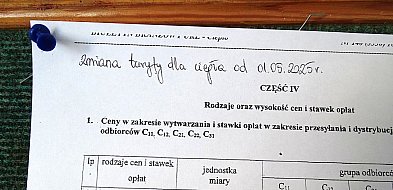 BIULETYN BRANŻOWY URE – Ciepło
zmiana taryfy dla ciepła od 01.05.2025r.
CZĘŚĆ IV
Rodzaje oraz wysokość cen i stawek opłat
1. Ceny w zakresie wytwarzania i stawki opłat w zakresie przesyłania i dystrybucj
odbiorców C₁₁, C₁₂, C₂₁, C₂₂, C₃₁
lp. rodzaje cen i stawek opłat
jednostka miary
grupa odbiorcó
C₁₁ C₁₂ C₂₁